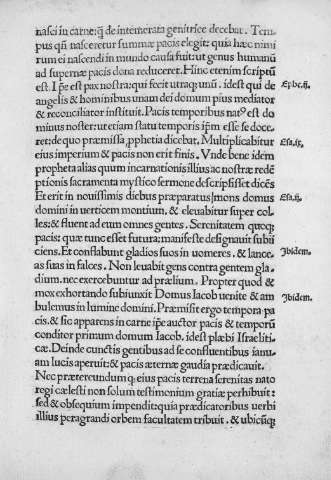 nasci in carne: q̃ de intemerata genitrice decebat. Tem-
pus qñ nasceretur summæ pacis elegit: quia hæc nimi
rum ei nascendi in mundo causa fuit: ut genus humanũ
ad supernæ pacis dona reduceret. Hinc etenim scriptũ
est. Ip̃e est pax nostra: qui fecit utraq; unũ. idest qui de
Ephe.ij.
angelis & hominibus unam dei domum pius mediator
& reconciliator instituit. Pacis temporibus natꝰ est do
minus noster: ut etiam statu temporis ip̃m esse se doce-
ret: de quo præmissa ꝓphetia dicebat. Multiplicabitur
Esa.ix.
eius imperium & pacis non erit finis. Vnde bene idem
propheta alias quum incarnationis illius ac nostræ redẽ
ptionis sacramenta mystico sermone descripsisset dicẽs
Et erit in nouissimis diebus præparatus mons domus
Esa.ij.
domini in uerticem montium, & eleuabitur super col-
les: & fluent ad eum omnes gentes. Serenitatem quoq;
pacis: quæ tunc esset futura: manifeste designauit subii
ciens. Et conflabunt gladios suos in uomeres, & lance-
Ibidem.
as suas in falces. Non leuabit gens contra gentem gla-
dium. nec exercebuntur ad prælium. Propter quod &
mox exhortando subiunxit Domus Iacob uenite & am
Ibidem.
bulemus in lumine domini. Præmisit ergo tempora pa-
cis. & sic apparens in carne ip̃e auctor pacis & temporũ
conditor primum domum Iacob. idest plæbi Israeliti-
cæ. Deinde cunctis gentibus ad se confluentibus ianu-
am lucis aperuit: & pacis æternæ gaudia prædicauit.
Nec prætereundum q; eius pacis terrena serenitas nato
regi cælesti non solum testimonium gratiæ perhibuit:
sed & obsequium impendit: quia prædicatoribus uerbi
illius peragrandi orbem facultatem tribuit. & ubicũq;